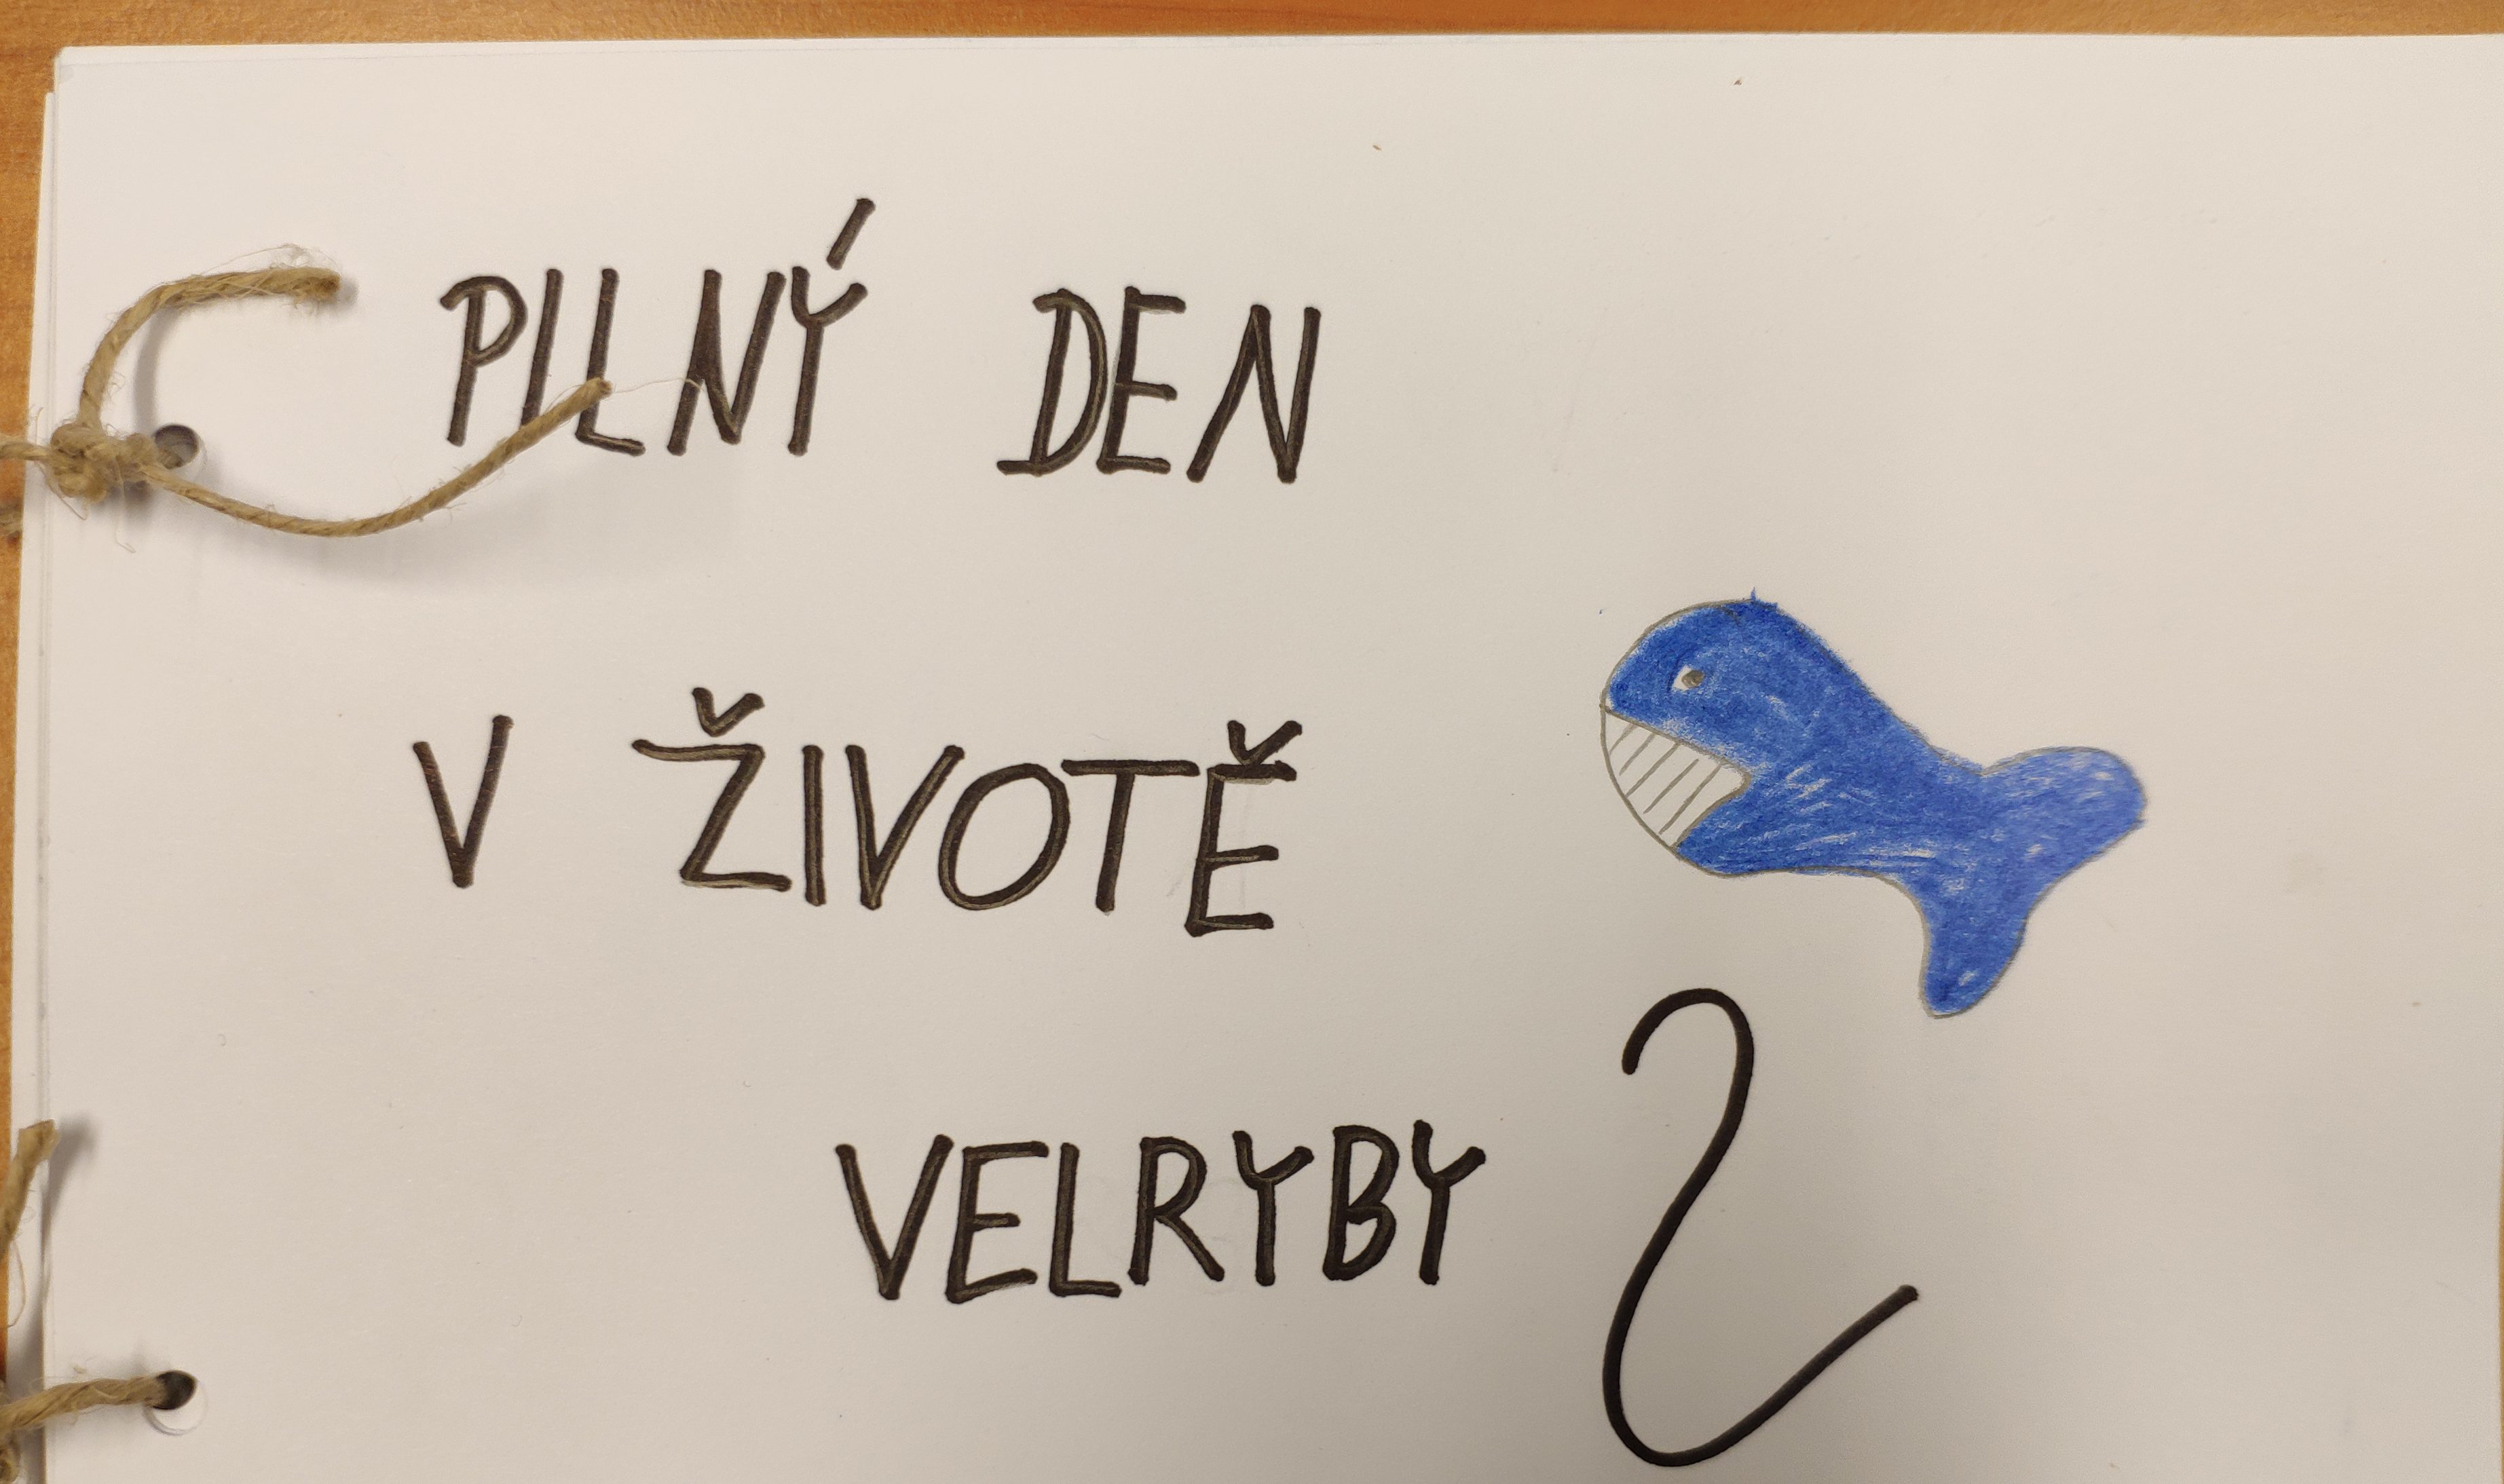 PILNÝ DEN
V ŽIVOTĚ
VELRYBY